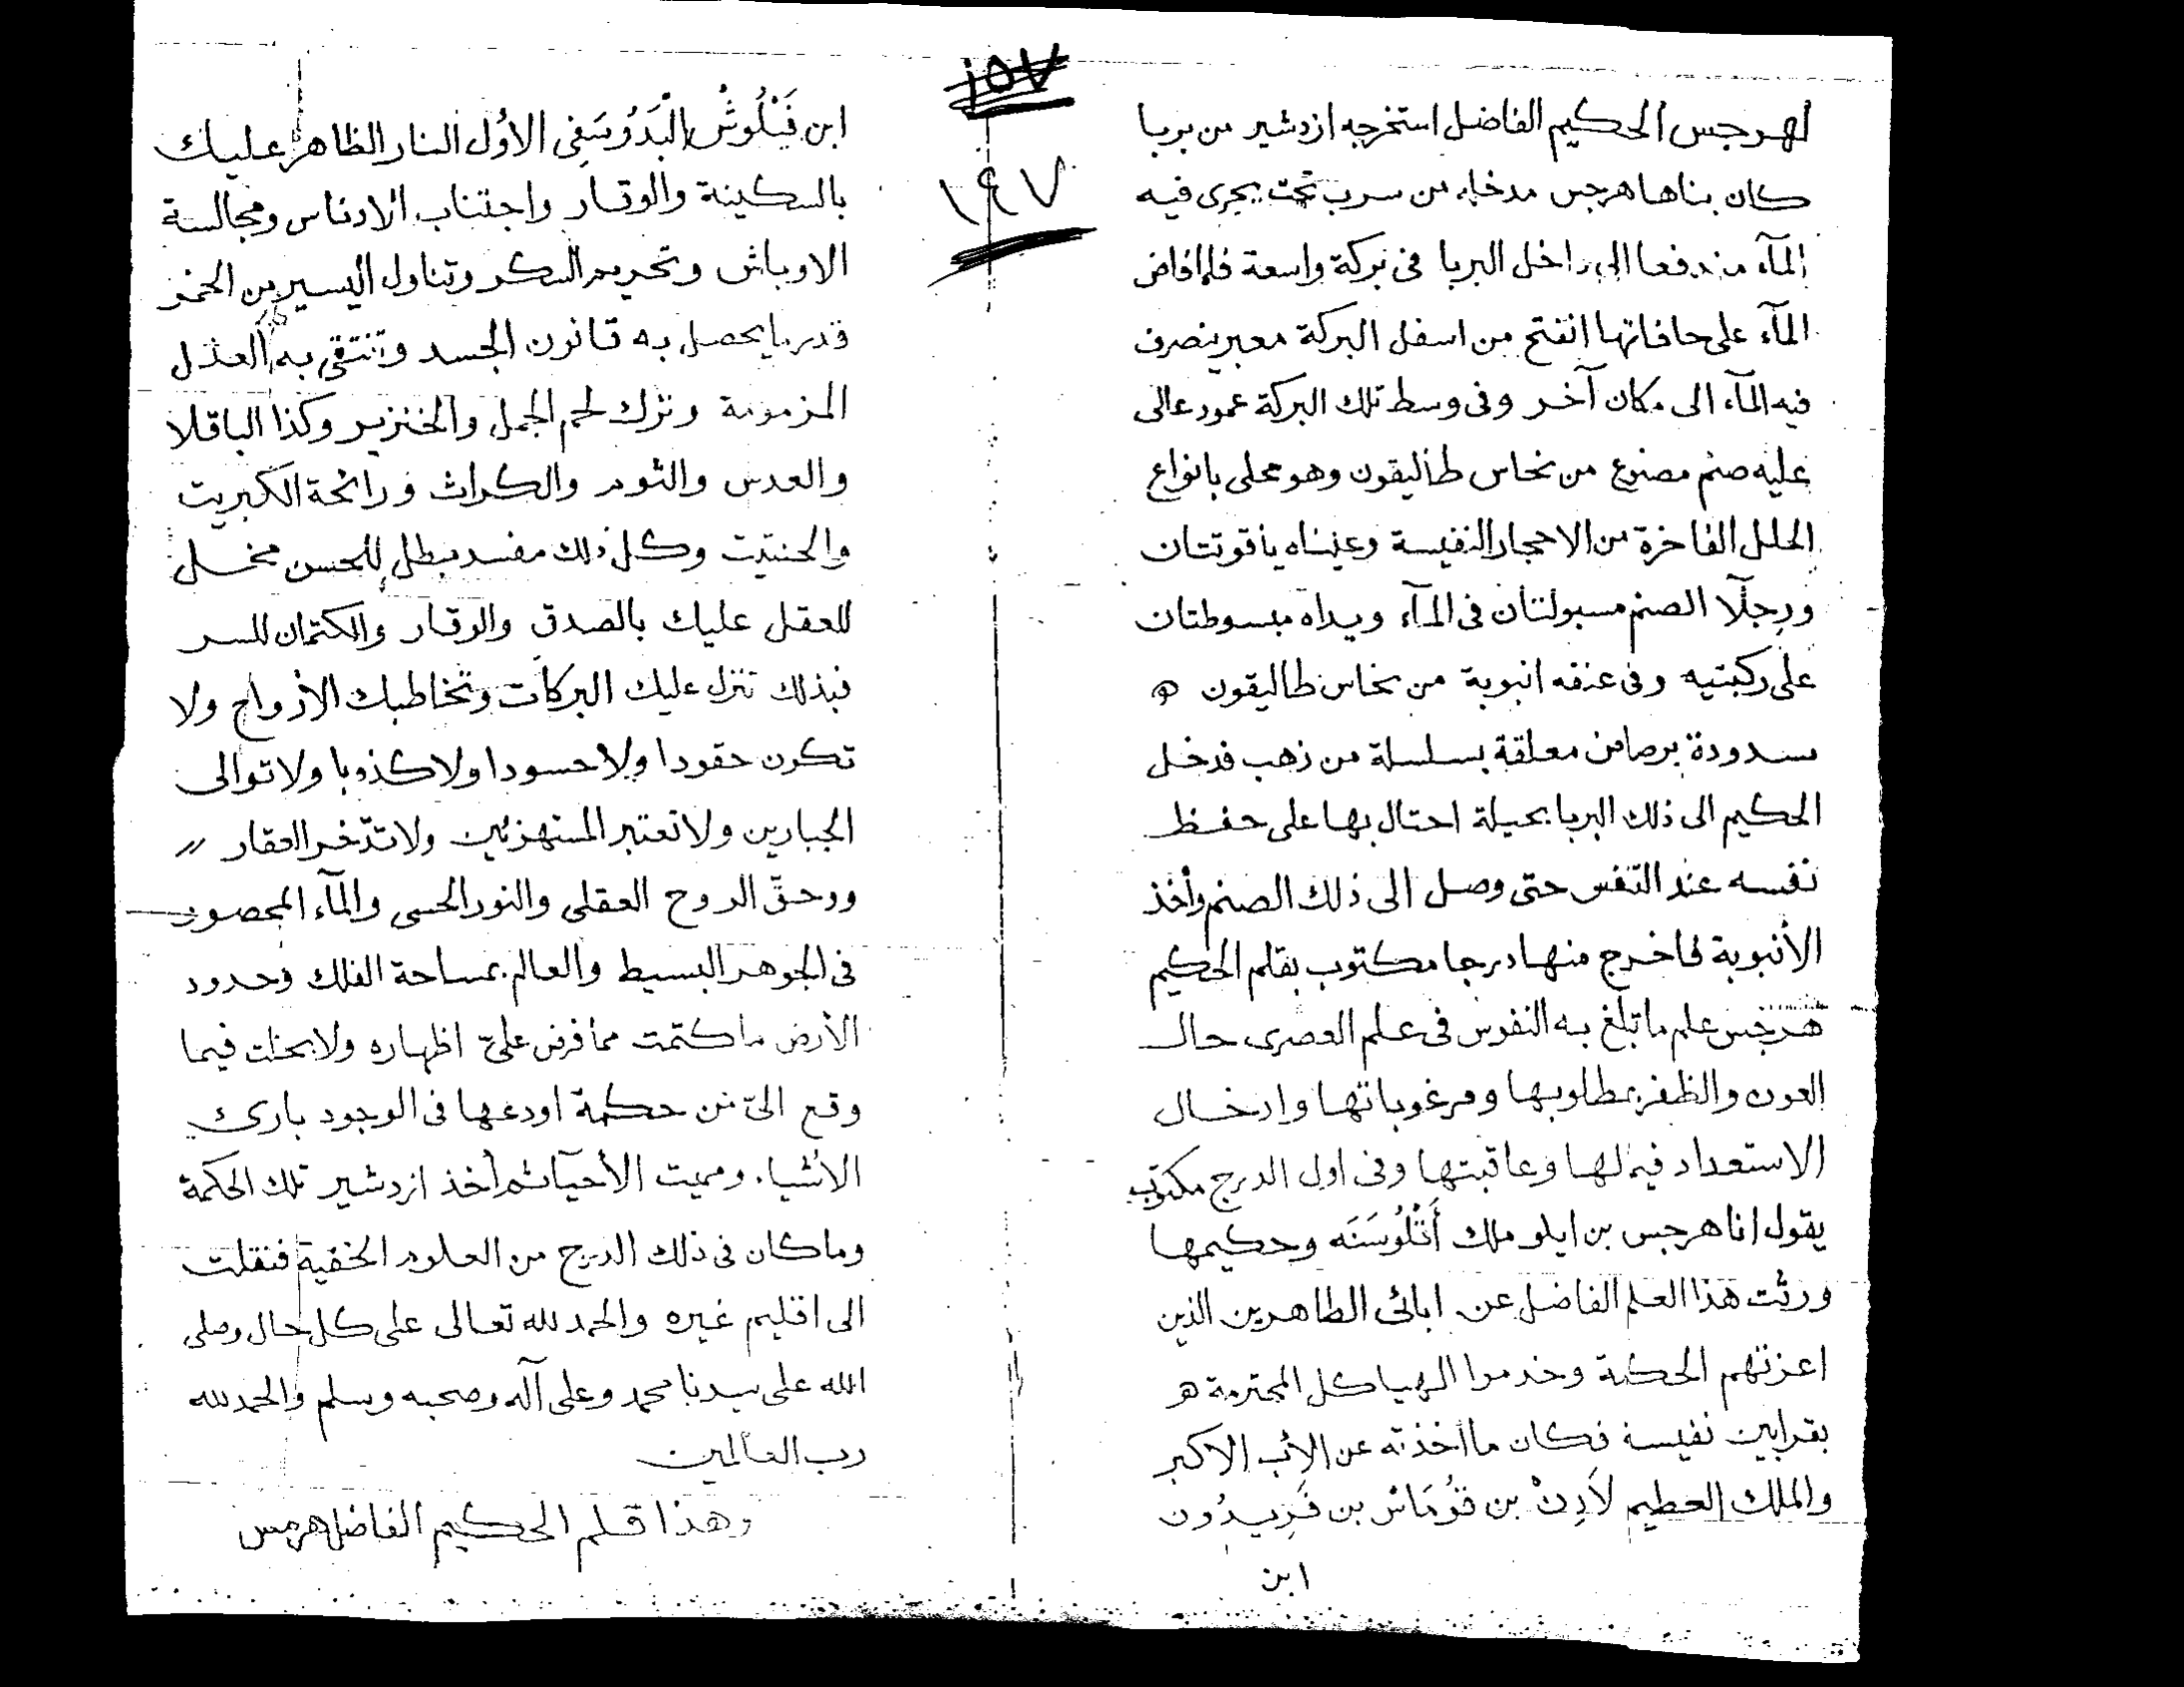 لهرجس الحكيم الفاضل استخرجه ازدشير من بربا
كان بناها هرجس مدخله من سرب تحت يجرى فيه
المآء مندفعا الى داخل البربا فى بركة واسعة فاذا فاض
المآء على حافاتها انفتح من اسفل البركة معبر ينصرف
فيه المآء الى مكان آخر وفى وسط تلك البركة عمود عالى
عليه صنم مصنوع من نحاس طاليقون وهو محلى بانواع
الحلل الفاخرة من الاحجار النفيسة وعيناه ياقوتتان
ورجلا الصنم مسبولتان فى المآء ويداه مبسوطتان
على ركبتيه وفى عنقه انبوبة من نحاس طاليقون ه
مسدودة برصاص معلقة بسلسلة من ذهب فدخل
الحكيم الى ذلك البربا بحيلة احتال بها على حفظ
نفسه عند التنفس حتى وصل الى ذلك الصنم وأخذ
الأنبوبة فاخرج منها درجا مكتوب بقلم الحكيم
هرجس علم ما تبلغ به النفوس فى علم العصرى حال
العون والظفر بمطلوبها ومرغوباتها وادخال
الاستعداد فيه لها وعاقبتها وفى اول الدرج مكتوب
يقول انا هرجس بن ايلو ملك أَتْلُوسَنَه وحكيمها
ورثت هذا العلم الفاضل عن ابائى الطاهرين الذين
اعزتهم الحكمة وخدموا الهياكل المحترمة ه
بقرابين نفيسة فكان ما اخذته عن الأب الاكبر
والملك العظيم لَادِنْ بن قُومَاش بن فَرِيدُون
ابن
١٥٧
١٩٧
ابن فَيْلُوشْ الْبَدُوسَفِى الأول النار الظاهر عليك
بالسكينة والوقار واجتناب الادناس ومجالسة
الاوباش وتحريم السكر وتناول اليسير من الخمر
قدر ما يحصل به قانون الجسد وتنتقى به العلل
المزمومة وترك لحم الجمل والخنزير وكذا الباقلا
والعدس والثوم والكراث ورائحة الكبريت
والحنتيت وكل ذلك مفسد مبطل للحسن مخل
للعقل عليك بالصدق والوقار والكتمان للسر
فبذلك تنزل عليك البركات وتخاطبك الأرواح ولا
تكون حقودا ولا حسودا ولا كذوبا ولا توالى
الجبارين ولا تعتبر المستهزئين ولا تدّخر العقار //
ووحقّ الروح العقلى والنور الحسى والمآء المحصور
فى الجوهر البسيط والعالم بمساحة الفلك وحدود
الأرض ما كتمت مما فرض علىّ اظهاره ولا بخلت فيما
وقع الىّ من حكمة اودعها فى الوجود بارئ
الأشياء ومميت الأحيآ ثم أخذ ازدشير تلك الحكمة
وما كان فى ذلك الدرج من العلوم الخفية فنقلت
الى اقليم غيره والحمد لله تعالى على كل حال وصلى
الله على سيدنا محمد وعلى آله وصحبه وسلم والحمد لله
رب العالمين
وهذا قلم الحكيم الفاضل هرمس